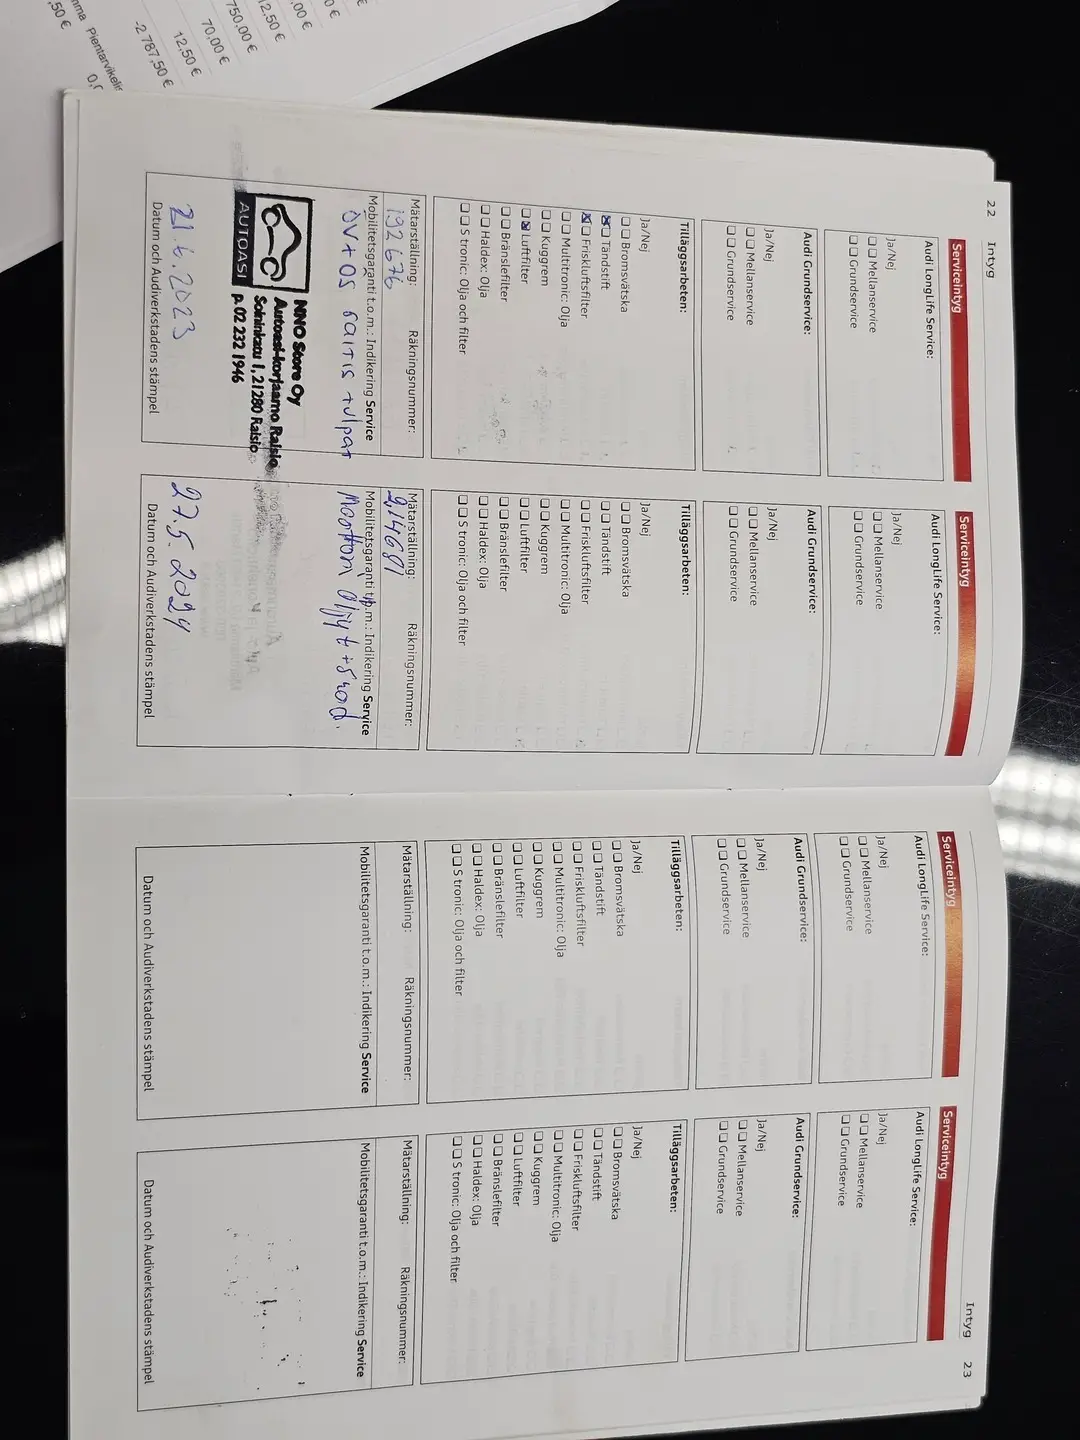 50 €
mma Pientarvikelis
0,0
-2 787,50 €
12,50 €
70,00 €
750,00 €
12,50 €
00 €
0 €
€
22
Intyg
Serviceintyg
Audi LongLife Service:
Ja/Nej
Mellanservice
Grundservice
Audi Grundservice:
Ja/Nej
Mellanservice
Grundservice
Tilläggsarbeten:
Ja/Nej
Bromsvätska
Tändstift
Friskluftsfilter
Multitronic: Olja
Kuggrem
Luftfilter
Bränslefilter
Haldex: Olja
S tronic: Olja och filter
Mätarställning: Räkningsnummer:
192676
Mobilitetsgaranti t.o.m.: Indikering Service
ÖV+OS raitis tulpat
NNO Store Oy
Autoasi-korjaamo Raisio
Solninkatu 1, 21280 Raisio
p. 02 232 1946
AUTOASI
21.6.2023
Datum och Audiverkstadens stämpel
Serviceintyg
Audi LongLife Service:
Ja/Nej
Mellanservice
Grundservice
Audi Grundservice:
Ja/Nej
Mellanservice
Grundservice
Tilläggsarbeten:
Ja/Nej
Bromsvätska
Tändstift
Friskluftsfilter
Multitronic: Olja
Kuggrem
Luftfilter
Bränslefilter
Haldex: Olja
S tronic: Olja och filter
Mätarställning: Räkningsnummer:
214681
Mobilitetsgaranti t.o.m.: Indikering Service
Moottori öljyt + suod.
27.5.2024
Datum och Audiverkstadens stämpel
Serviceintyg
Audi LongLife Service:
Ja/Nej
Mellanservice
Grundservice
Audi Grundservice:
Ja/Nej
Mellanservice
Grundservice
Tilläggsarbeten:
Ja/Nej
Bromsvätska
Tändstift
Friskluftsfilter
Multitronic: Olja
Kuggrem
Luftfilter
Bränslefilter
Haldex: Olja
S tronic: Olja och filter
Mätarställning: Räkningsnummer:
Mobilitetsgaranti t.o.m.: Indikering Service
Datum och Audiverkstadens stämpel
Intyg 23
Serviceintyg
Audi LongLife Service:
Ja/Nej
Mellanservice
Grundservice
Audi Grundservice:
Ja/Nej
Mellanservice
Grundservice
Tilläggsarbeten:
Ja/Nej
Bromsvätska
Tändstift
Friskluftsfilter
Multitronic: Olja
Kuggrem
Luftfilter
Bränslefilter
Haldex: Olja
S tronic: Olja och filter
Mätarställning: Räkningsnummer:
Mobilitetsgaranti t.o.m.: Indikering Service
Datum och Audiverkstadens stämpel